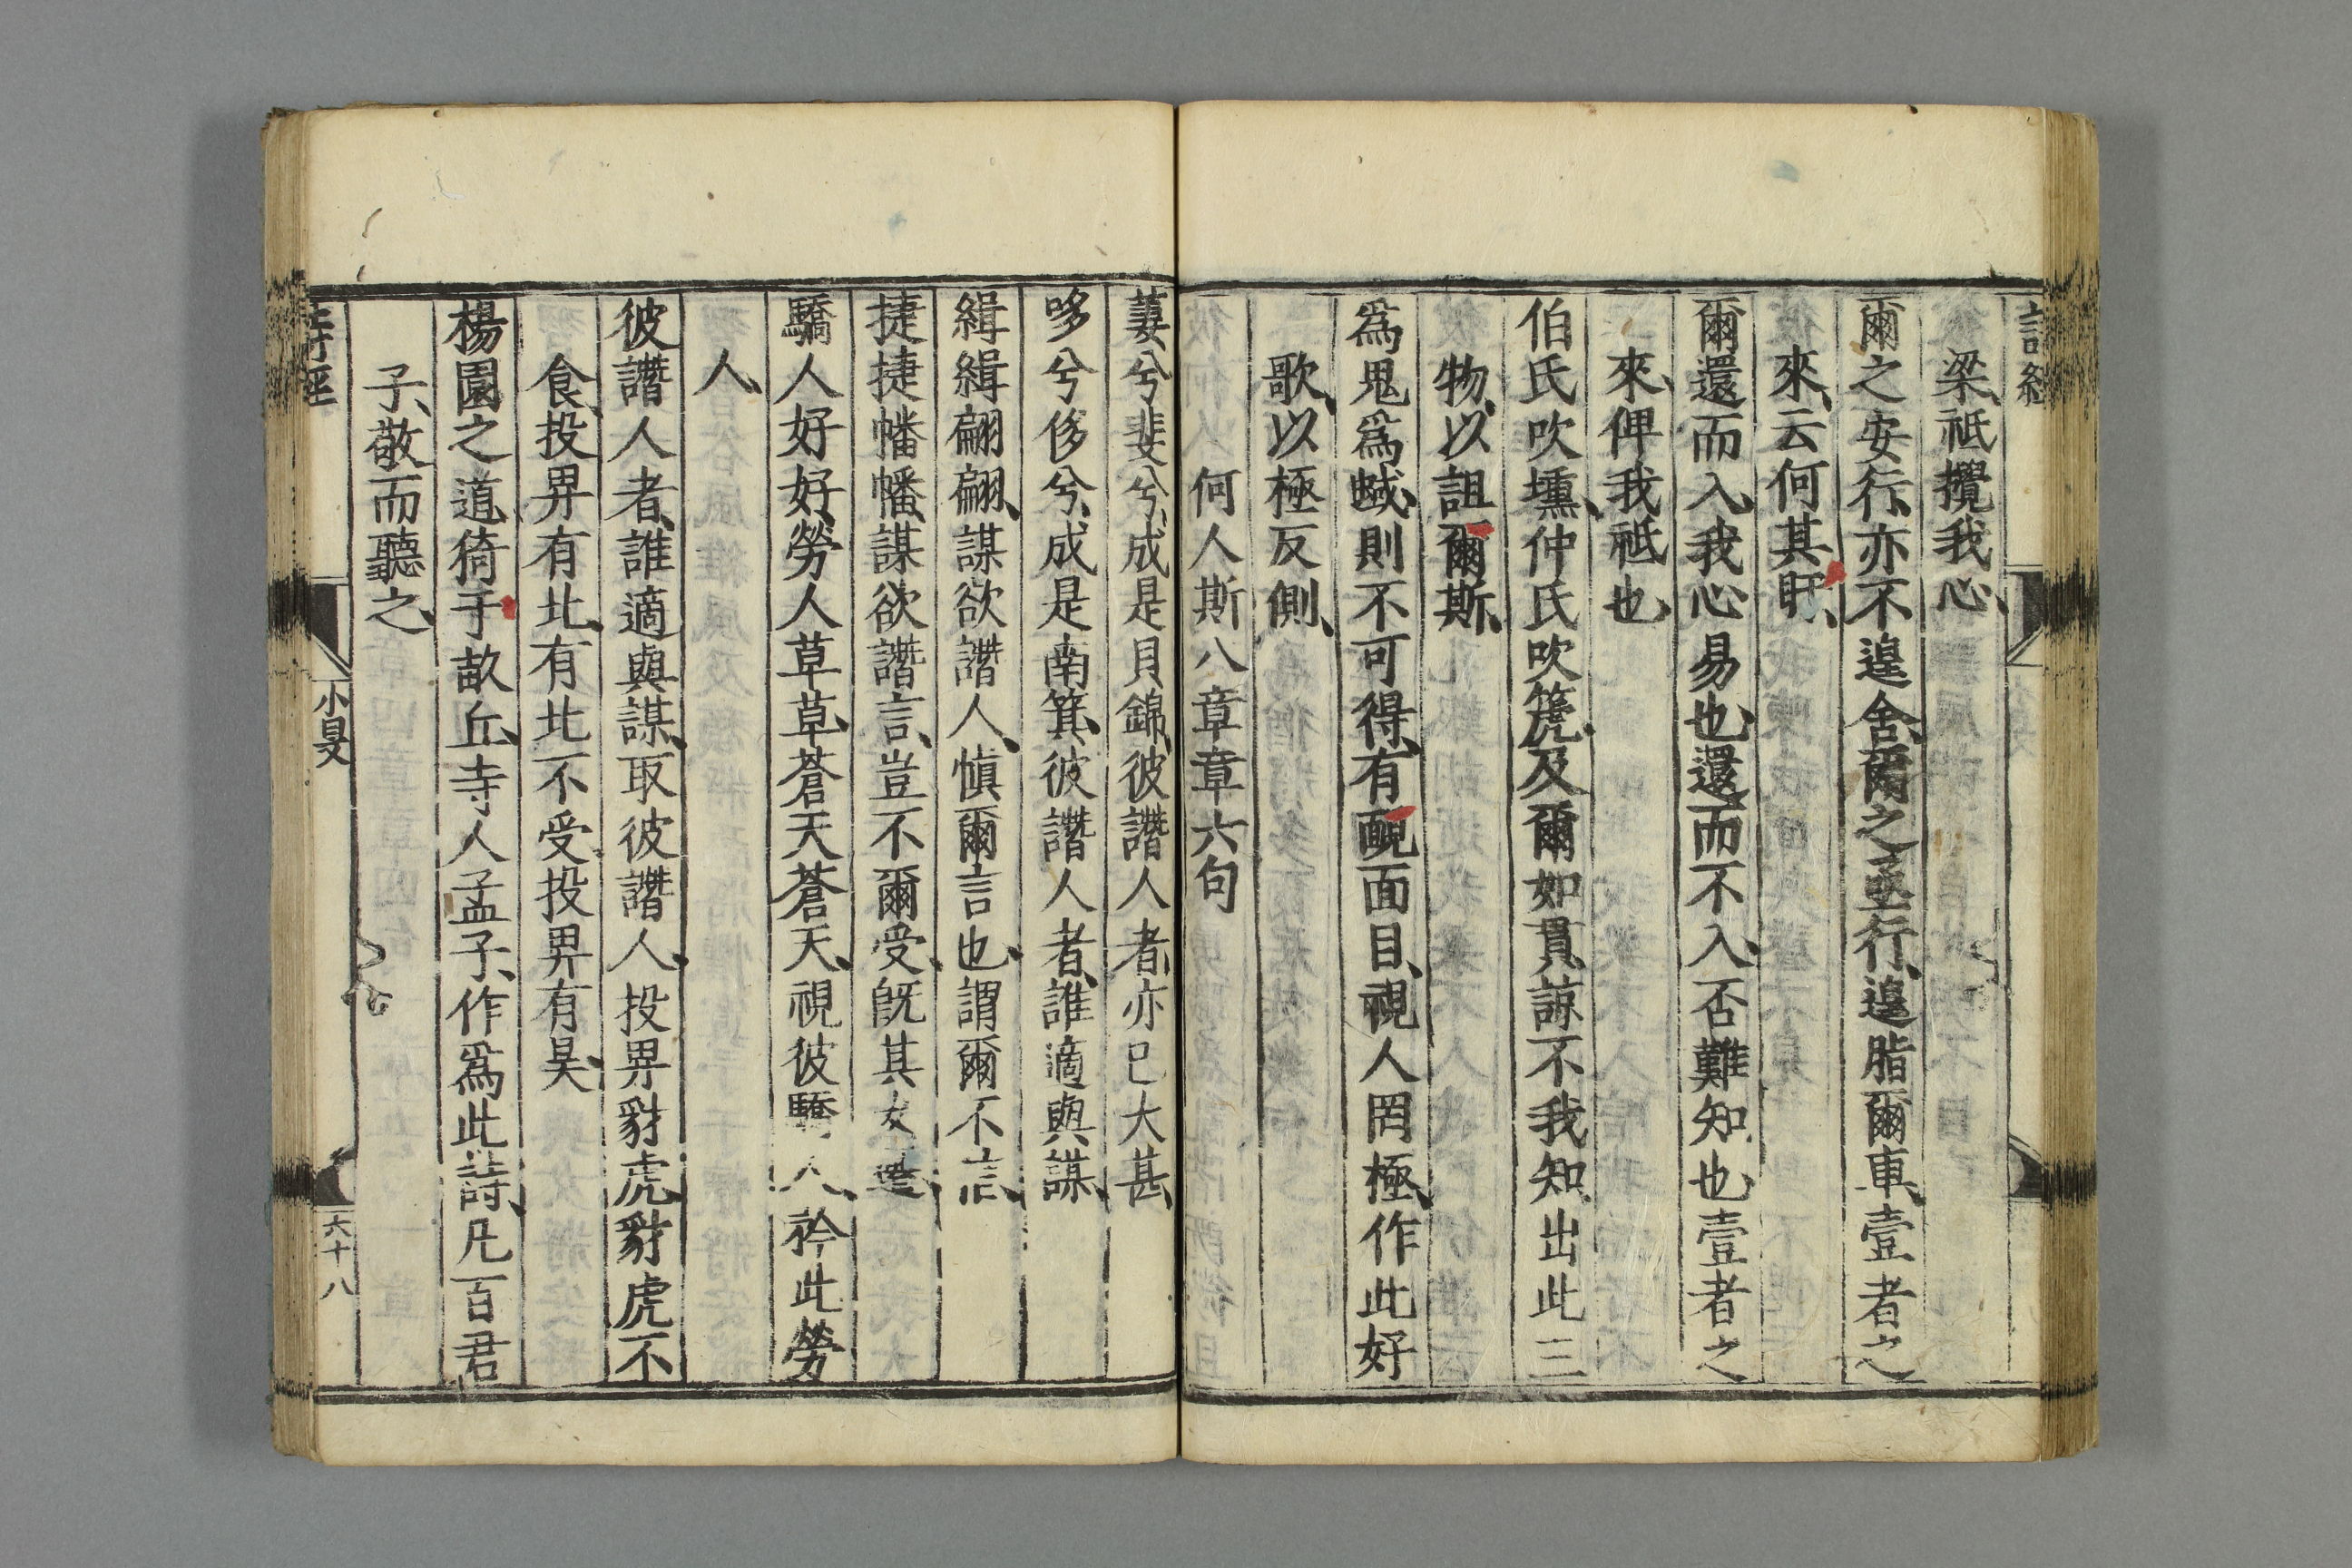 詩經
梁、祗攪我心、
爾之安行、亦不遑舍、爾之亟行、遑脂爾車、壹者之
來、云何其盱、
爾還而入、我心易也、還而不入、否難知也壹者之
來、俾我祗也
伯氏吹壎、仲氏吹篪、及爾如貫、諒不我知出此三
物、以詛爾斯、
爲鬼爲蜮、則不可得、有靦面目、視人罔極、作此好
歌、以極反側、
何人斯八章章六句
萋兮斐兮、成是貝錦、彼譖人者、亦已大甚、
哆兮侈兮、成是南箕、彼譖人者、誰適與謀、
緝緝翩翩、謀欲譖人、愼爾言也、謂爾不信、
捷捷幡幡、謀欲譖言、豈不爾受、既其女遷、
驕人好好、勞人草草、蒼天蒼天、視彼驕人、矜此勞
人、
彼譖人者、誰適與謀、取彼譖人、投畀豺虎、豺虎不
食、投畀有北、有北不受、投畀有昊、
楊園之道、猗于畝丘、寺人孟子、作爲此詩、凡百君
子、敬而聽之、
詩經
小旻
六十八